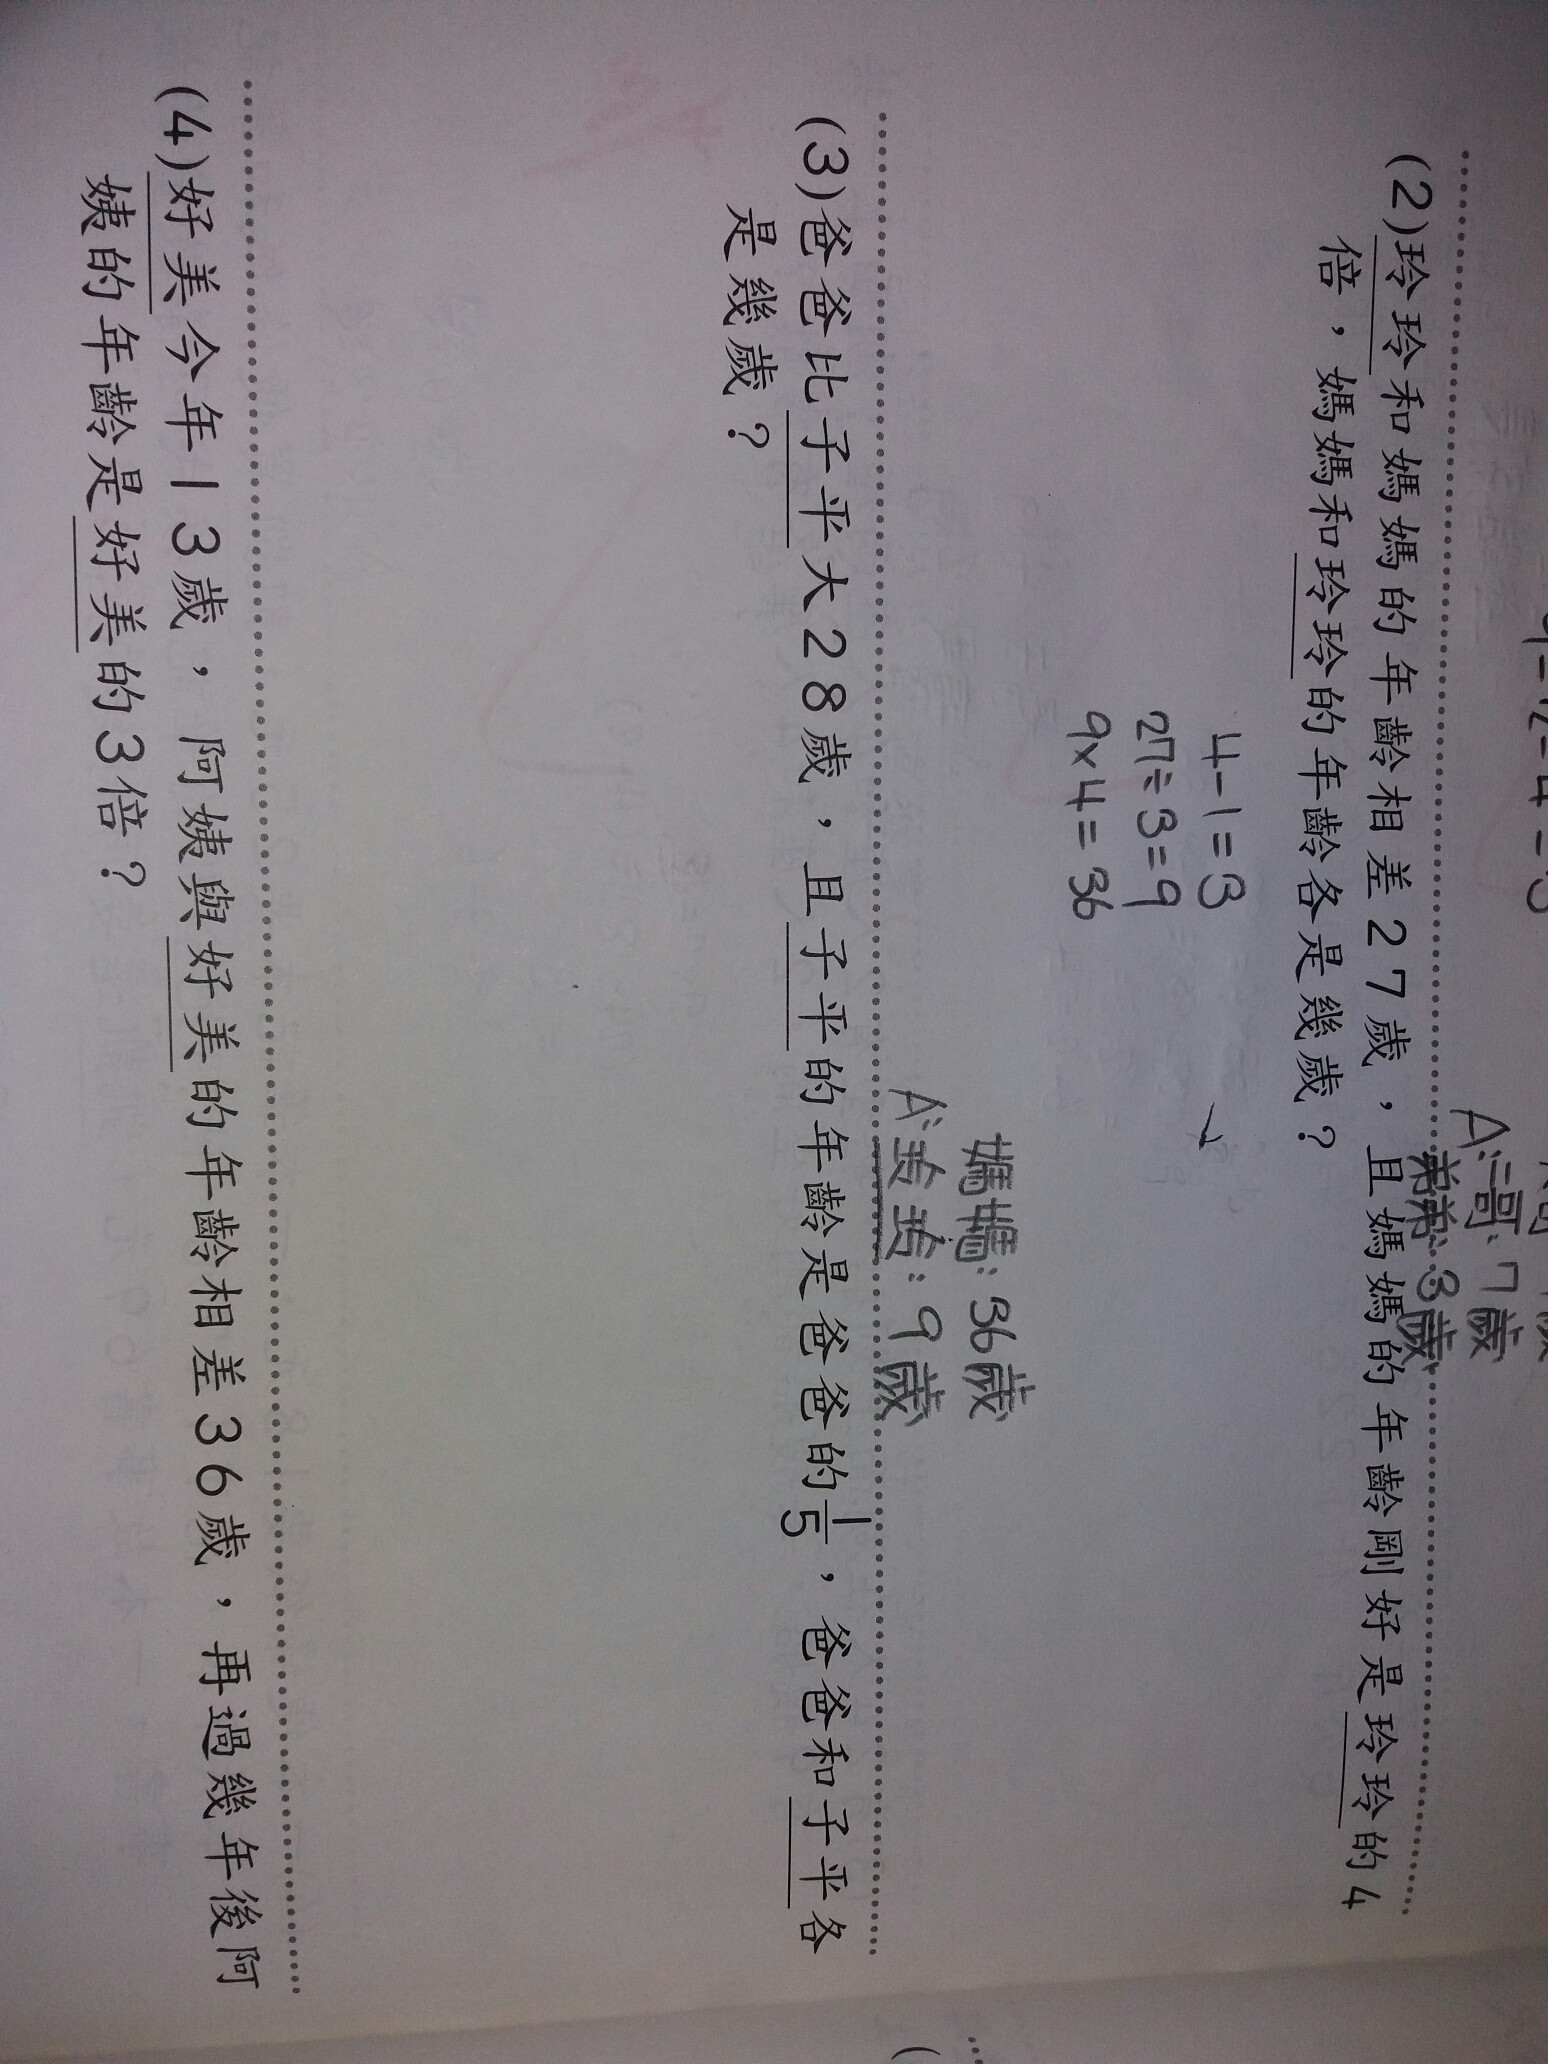 A:二哥:7歲
弟弟:3歲
(2)玲玲和媽媽的年齡相差27歲，且媽媽的年齡剛好是玲玲的4
倍，媽媽和玲玲的年齡各是幾歲？
4-1=3
27÷3=9
9×4=36
媽媽:36歲
A:玲玲:9歲
(3)爸爸比子平大28歲，且子平的年齡是爸爸的1/5，爸爸和子平各
是幾歲？
(4)好美今年13歲，阿姨與好美的年齡相差36歲，再過幾年後阿
姨的年齡是好美的3倍？